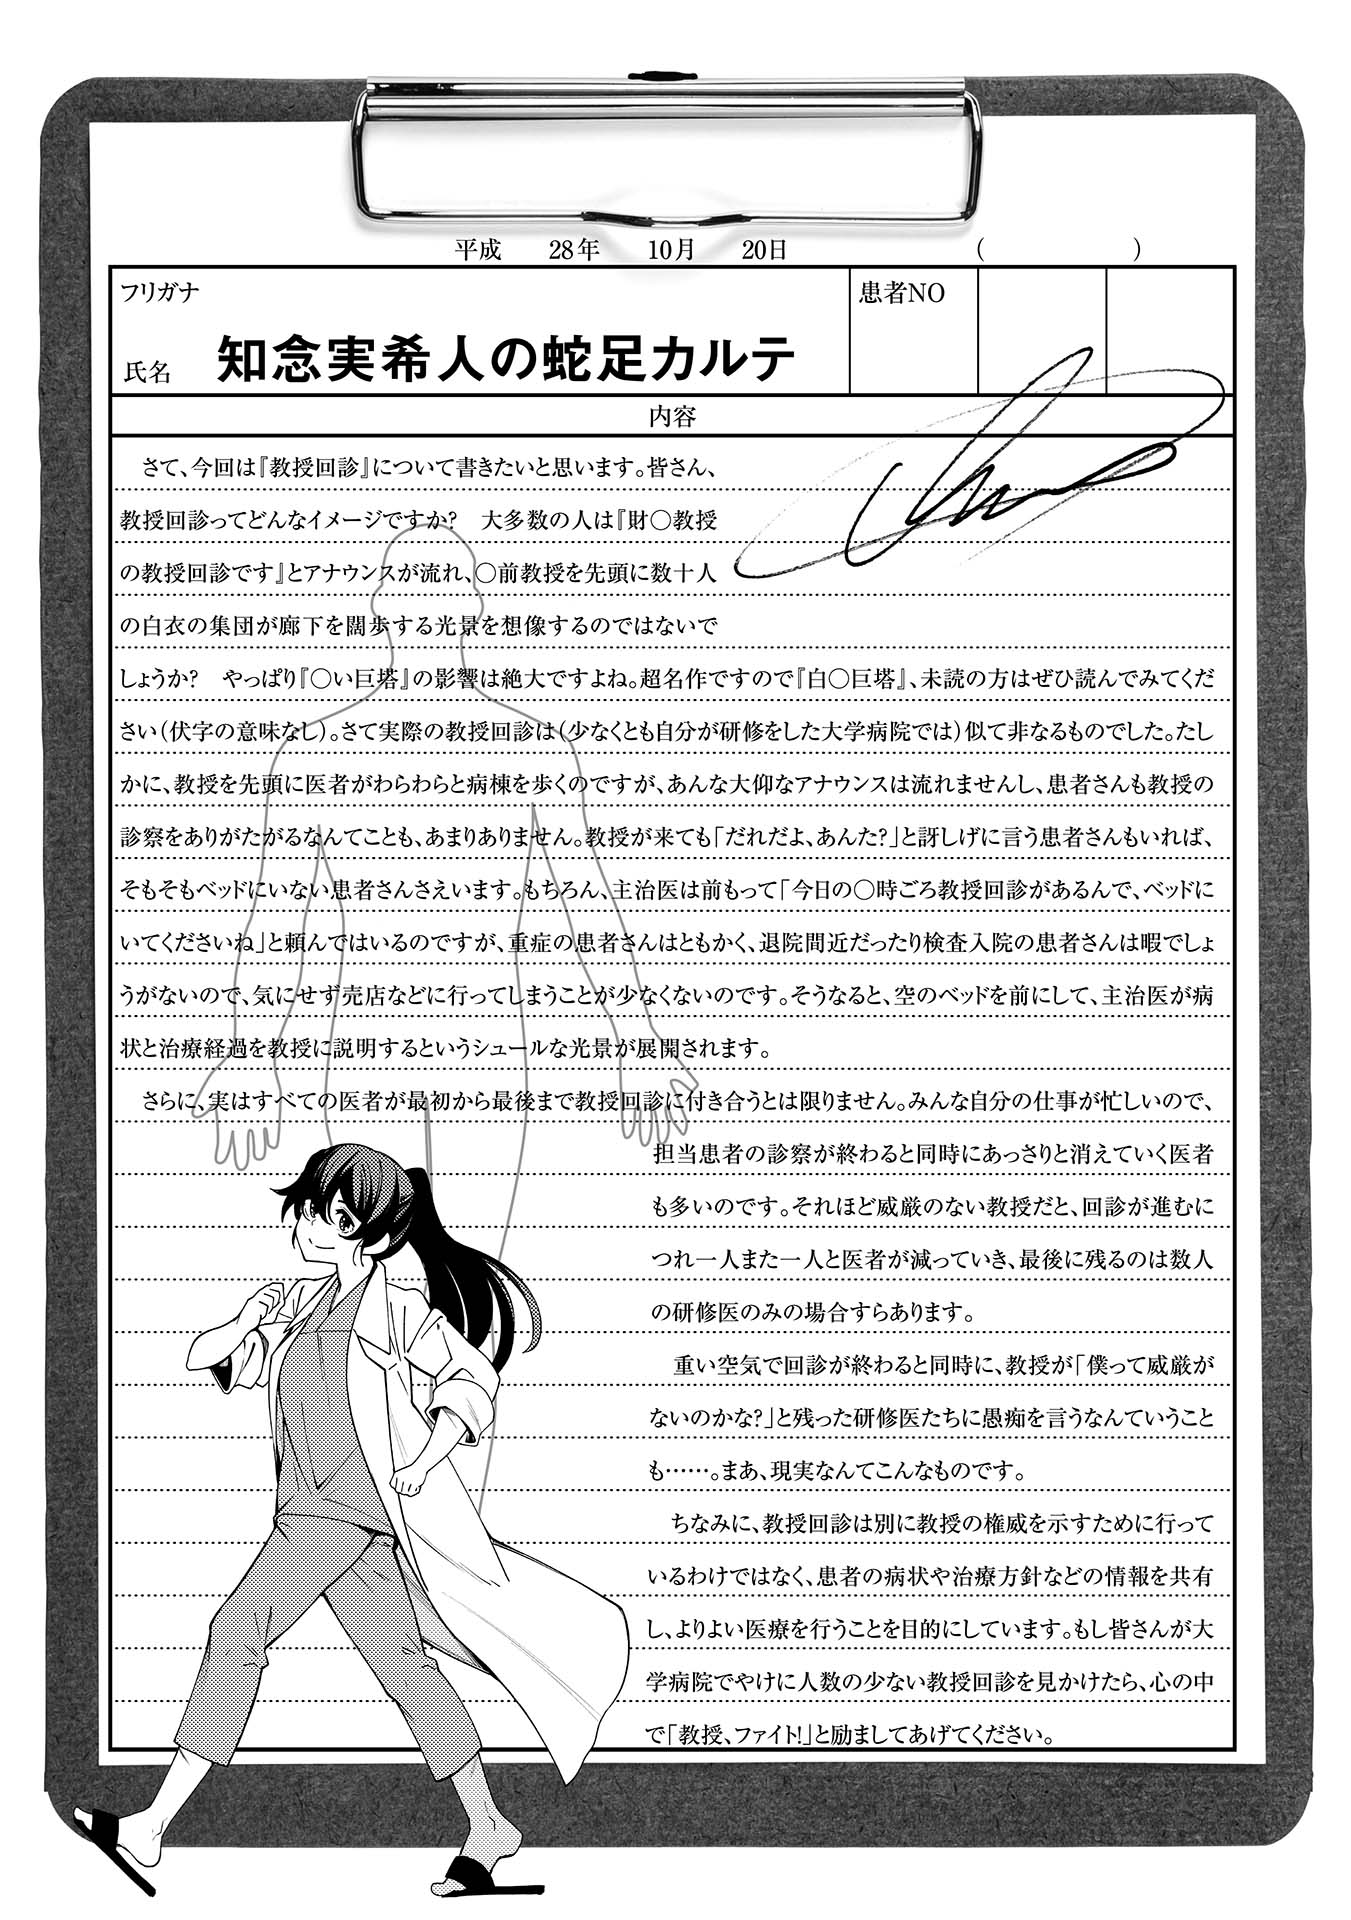 平成　28年　10月　20日　（　）
フリガナ
患者NO
氏名　知念実希人の蛇足カルテ
内容
さて、今回は『教授回診』について書きたいと思います。皆さん、
教授回診ってどんなイメージですか？　大多数の人は『財〇教授
の教授回診です』とアナウンスが流れ、〇前教授を先頭に数十人
の白衣の集団が廊下を闊歩する光景を想像するのではないで
しょうか？　やっぱり『〇い巨塔』の影響は絶大ですよね。超名作ですので『白〇巨塔』、未読の方はぜひ読んでみてくだ
さい（伏字の意味なし）。さて実際の教授回診は（少なくとも自分が研修をした大学病院では）似て非なるものでした。たし
かに、教授を先頭に医者がわらわらと病棟を歩くのですが、あんな大仰なアナウンスは流れませんし、患者さんも教授の
診察をありがたがるなんてことも、あまりありません。教授が来ても「だれだよ、あんた？」と訝しげに言う患者さんもいれば、
そもそもベッドにいない患者さんさえいます。もちろん、主治医は前もって「今日の〇時ごろ教授回診があるんで、ベッドに
いてくださいね」と頼んではいるのですが、重症の患者さんはともかく、退院間近だったり検査入院の患者さんは暇でしょ
うがないので、気にせず売店などに行ってしまうことが少なくないのです。そうなると、空のベッドを前にして、主治医が病
状と治療経過を教授に説明するというシュールな光景が展開されます。
さらに、実はすべての医者が最初から最後まで教授回診に付き合うとは限りません。みんな自分の仕事が忙しいので、
担当患者の診察が終わると同時にあっさりと消えていく医者
も多いのです。それほど威厳のない教授だと、回診が進むに
つれ一人また一人と医者が減っていき、最後に残るのは数人
の研修医のみの場合すらあります。
重い空気で回診が終わると同時に、教授が「僕って威厳が
ないのかな？」と残った研修医たちに愚痴を言うなんていうこと
も……。まあ、現実なんてこんなものです。
ちなみに、教授回診は別に教授の権威を示すために行って
いるわけではなく、患者の病状や治療方針などの情報を共有
し、よりよい医療を行うことを目的にしています。もし皆さんが大
学病院でやけに人数の少ない教授回診を見かけたら、心の中
で「教授、ファイト！」と励ましてあげてください。